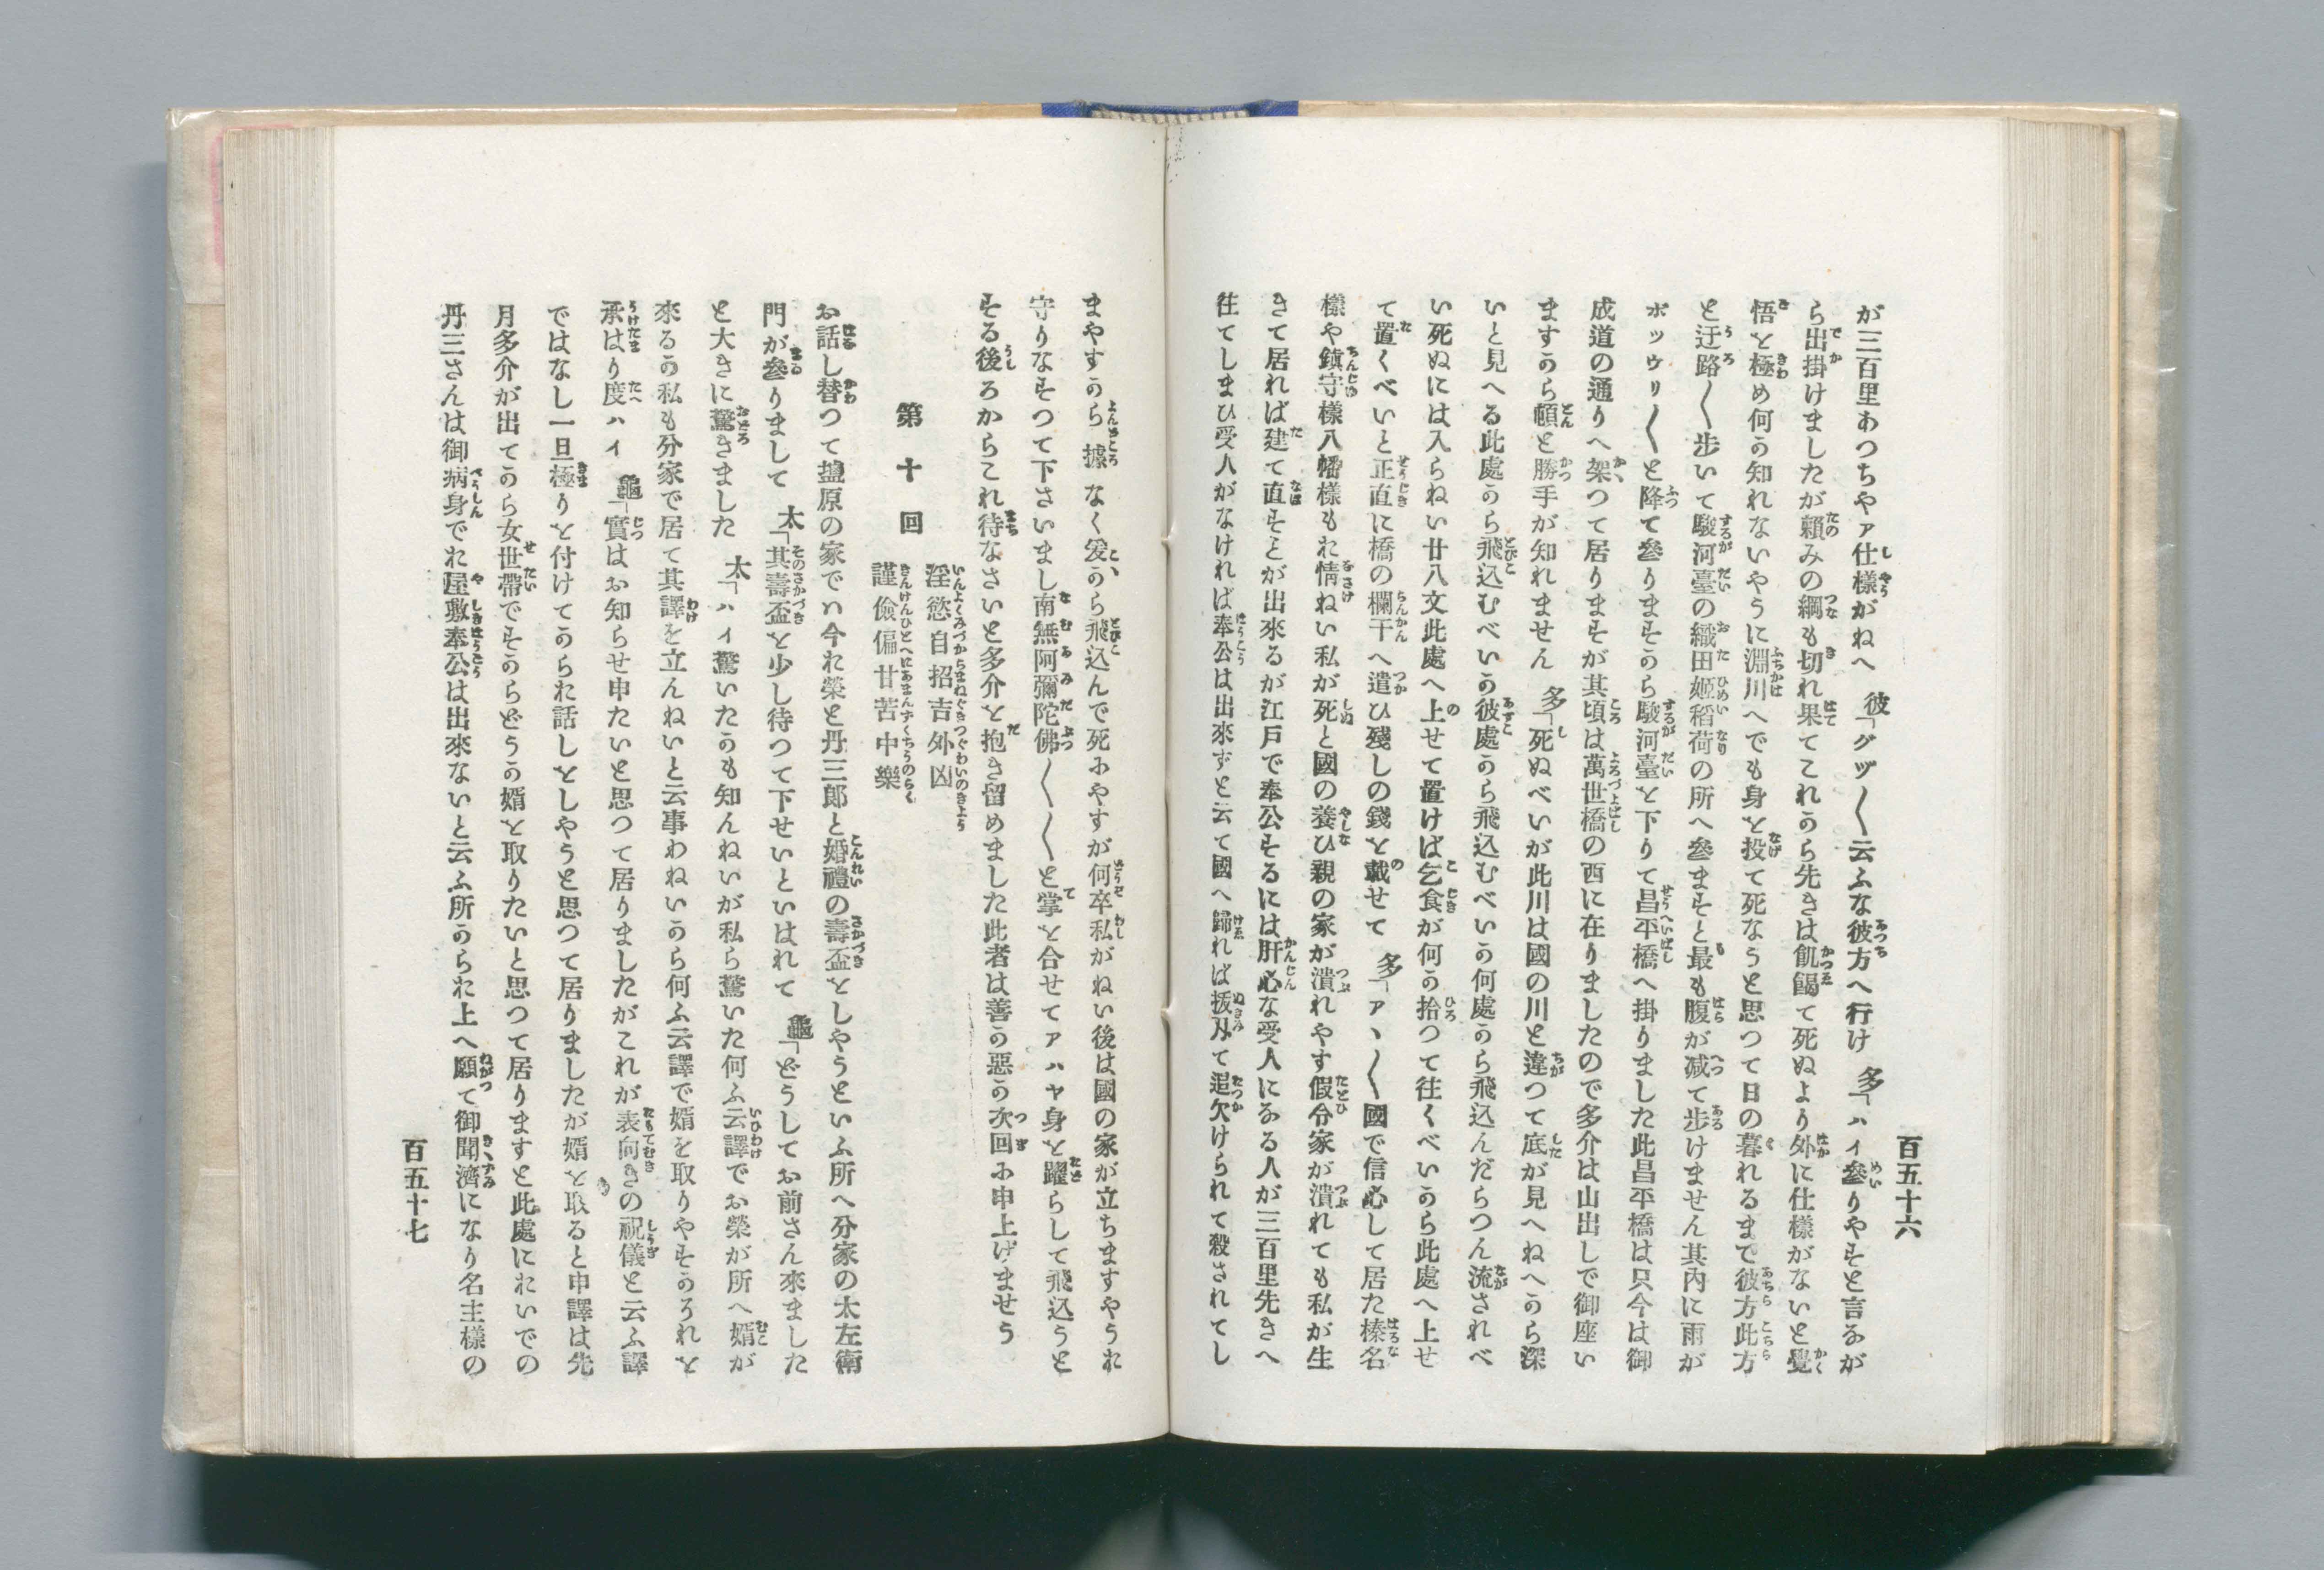 百五十六
が三百里あつちやァ仕樣がねへ　彼「グヅ〱云ふな彼方へ行け　多「ハイ參りやすと言ゐが
ら出掛けましたが頼みの綱も切れ果てこれから先きは飢餲て死ぬより外に仕樣がないと覺
悟を極め何か知れないやうに淵川へでも身を投て死なうと思つて日の暮れるまで彼方此方
と迂路〱歩いて駿河臺の織田姬稻荷の所へ參ますと最も腹が减て歩けません其內に雨が
ポッウリ〱と降て參りますから駿河臺を下りて昌平橋へ掛りました此昌平橋は只今は御
成道の通りへ架つて居りますが其頃は萬世橋の西に在りましたので多介は山出しで御座い
ますから頓と勝手が知れません　多「死ぬべいが此川は國の川と違つて底が見へねへから深
いと見へる此處から飛込むべいか彼處から飛込むべいか何處から飛込んだらつん流されべ
い死ぬには入らねい廿八文此處へ上せて置けば乞食が何か拾つて往くべいから此處へ上せ
て置くべいと正直に橋の欄干へ遣ひ殘しの錢を載せて　多「アヽ〱國で信心して居た榛名
樣や鎭守樣八幡樣もお情ねい私が死と國の養ひ親の家が潰れやす假令家が潰れても私が生
きて居れば建て直すとが出來るが江戸で奉公するには肝心な受人になる人が三百里先きへ
往てしまひ受人がなければ奉公は出來ずと云て國へ歸れば拔刄て追欠けられて殺されてし
まやすから據なく爰から飛込んで死にやすが何卒私がねい後は國の家が立ちますやうお
守りなすつて下さいまし南無阿彌陀佛〱〱と掌を合せてアハヤ身を躍らして飛込うと
する後ろからこれ待なさいと多介を抱き留めました此者は善か惡か次回に申上げませう
第十回
淫慾自招吉外凶
謹儉偏甘苦中樂
お話し替つて盬原の家でハ今お榮と丹三郎と婚禮の壽盃をしやうといふ所へ分家の太左衛
門が參りまして　太「其壽盃を少し待つて下せいといはれて　龜「どうしてお前さん來ました
と大きに驚きました　太「ハイ驚いたかも知んねいが私ら驚いた何ふ云譯でお榮が所へ婿が
來るか私も分家で居て其譯を立んねいと云事わねいから何ふ云譯で婿を取りやすかそれを
承はり度ハイ　龜「實はお知らせ申たいと思つて居りましたがこれが表向きの祝儀と云ふ譯
ではなし一旦極りを付けてからお話しをしやうと思つて居りましたが婿を取ると申譯は先
月多介が出てから女世帶ですからどうか婿を取りたいと思つて居りますと此處においでの
丹三さんは御病身でお屋敷奉公は出來ないと云ふ所からお上へ願て御聞濟になり名主樣の
百五十七